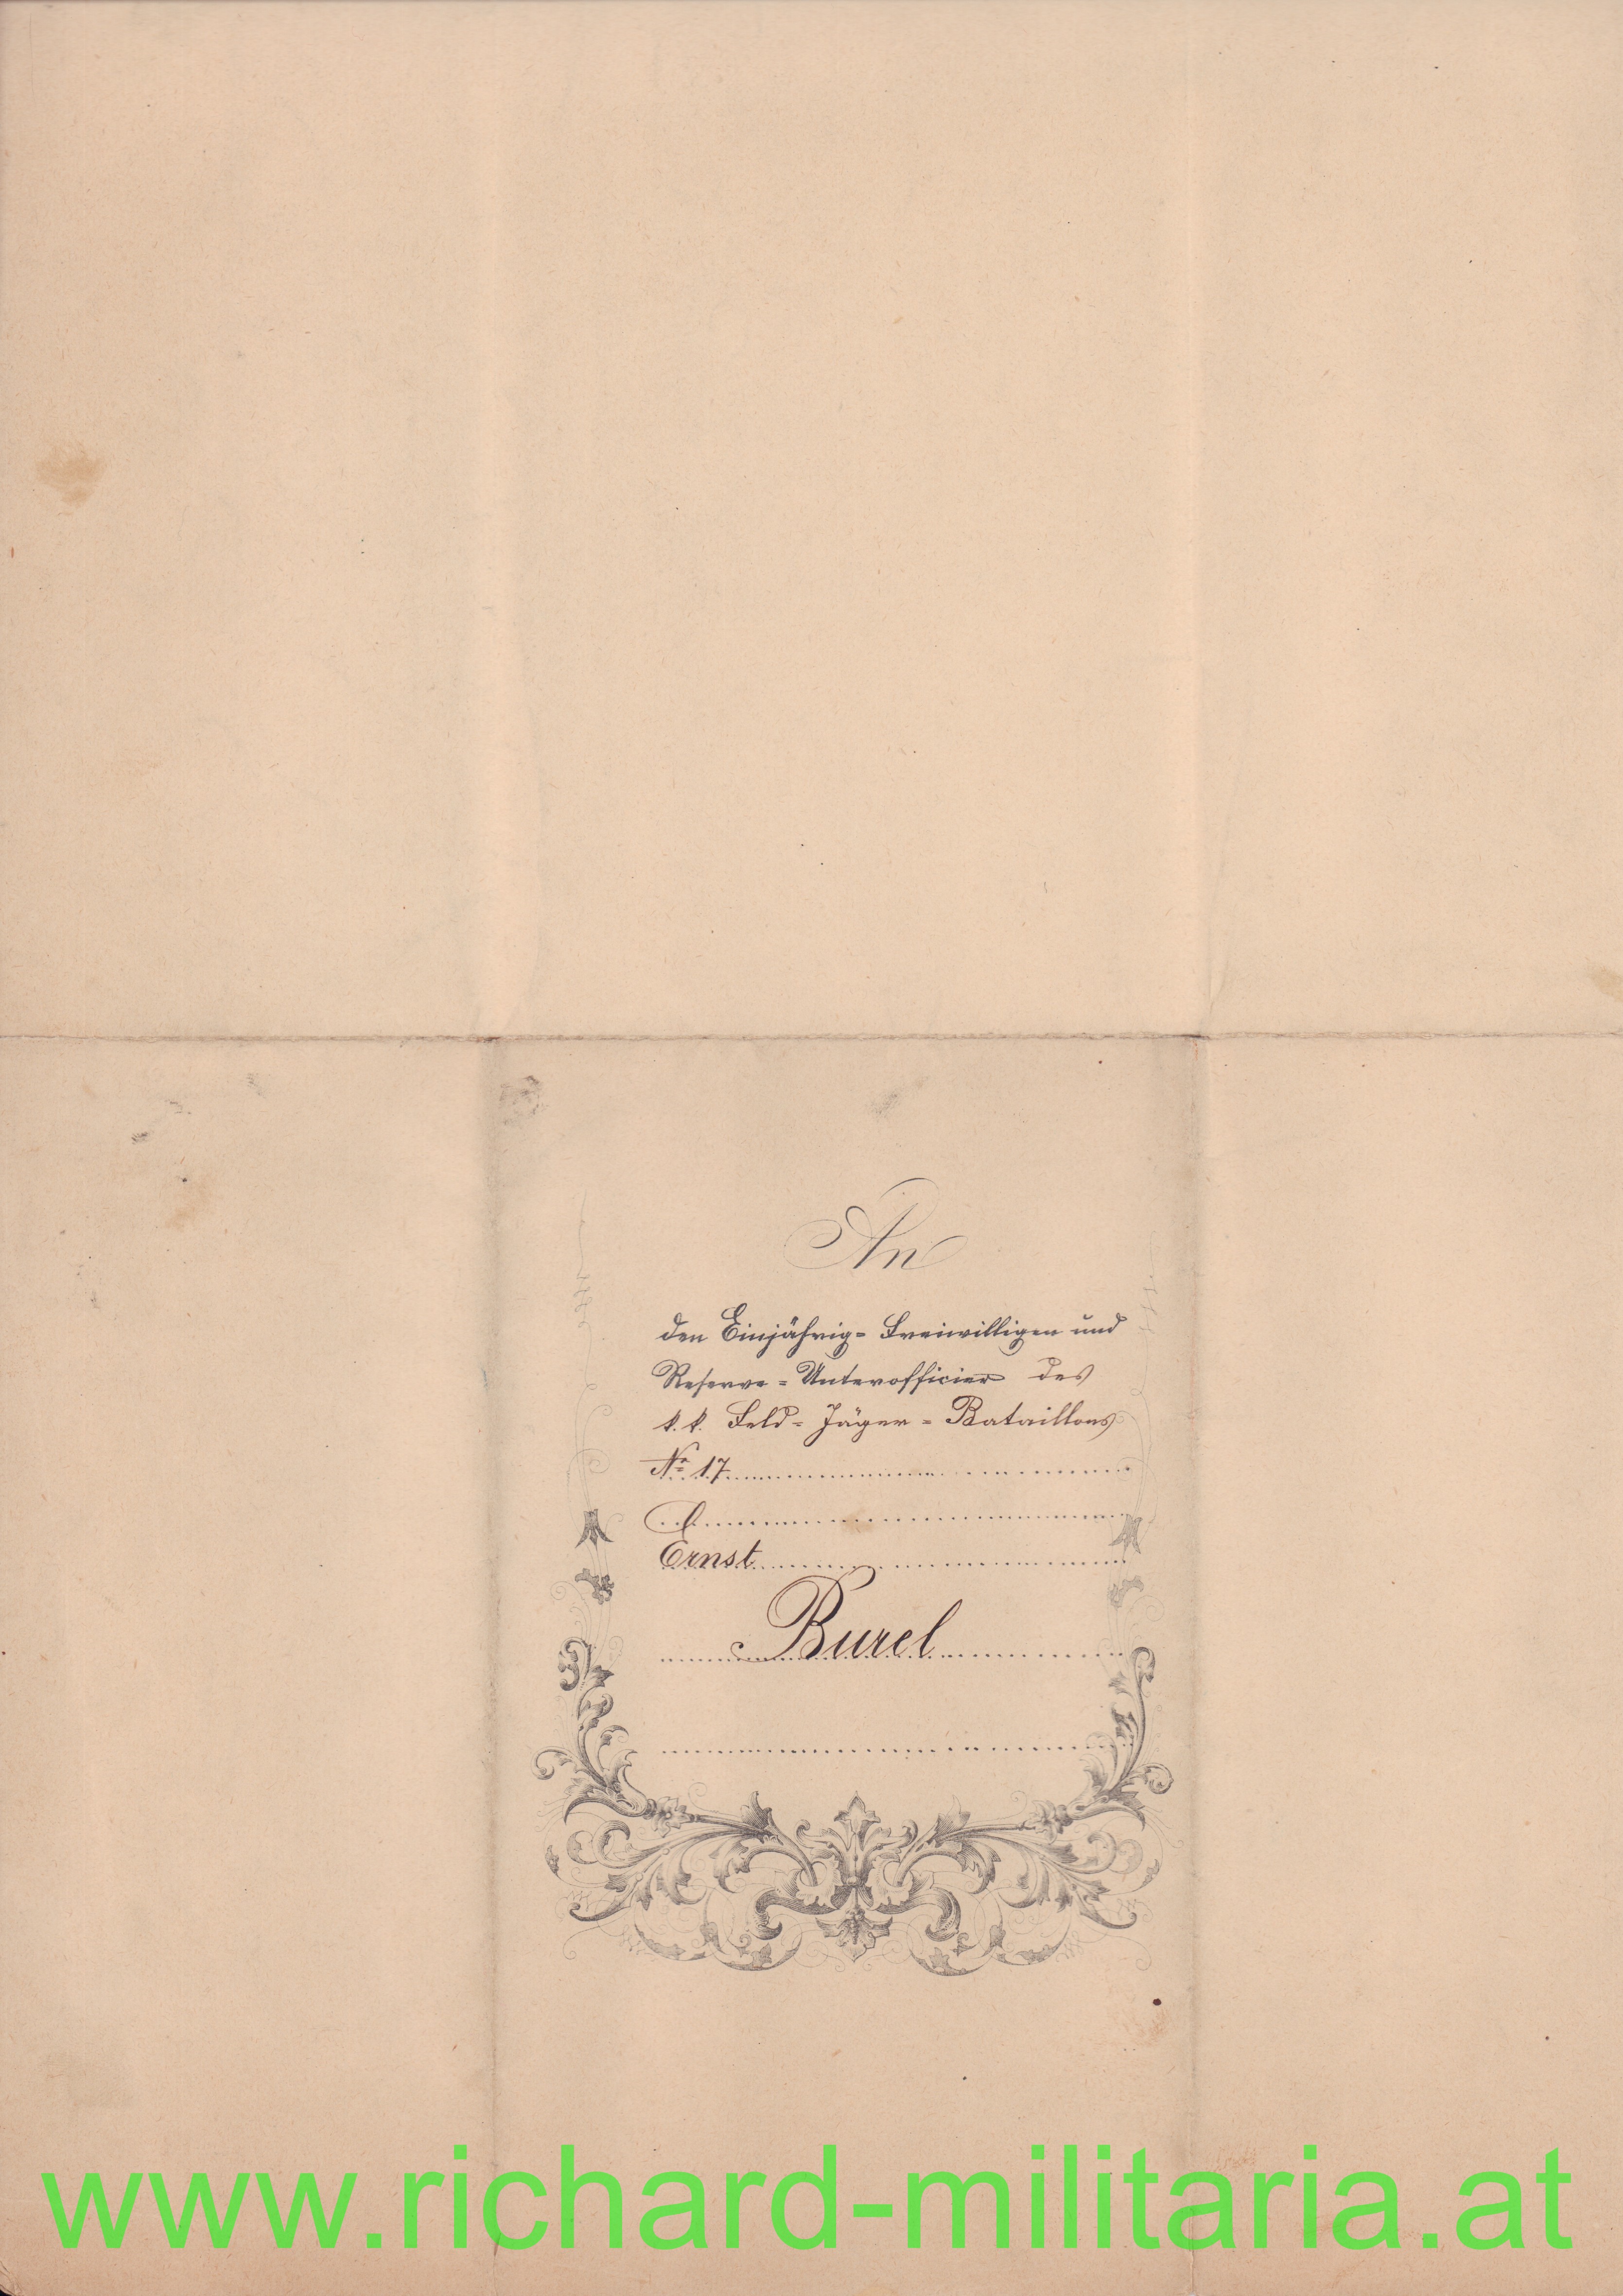 An
den Einjährig- Freiwilligen und
Reserve- Unterofficier des
k. k. Feld- Jäger- Bataillons
No 17
Ernst
Burel
www.richard-militaria.at